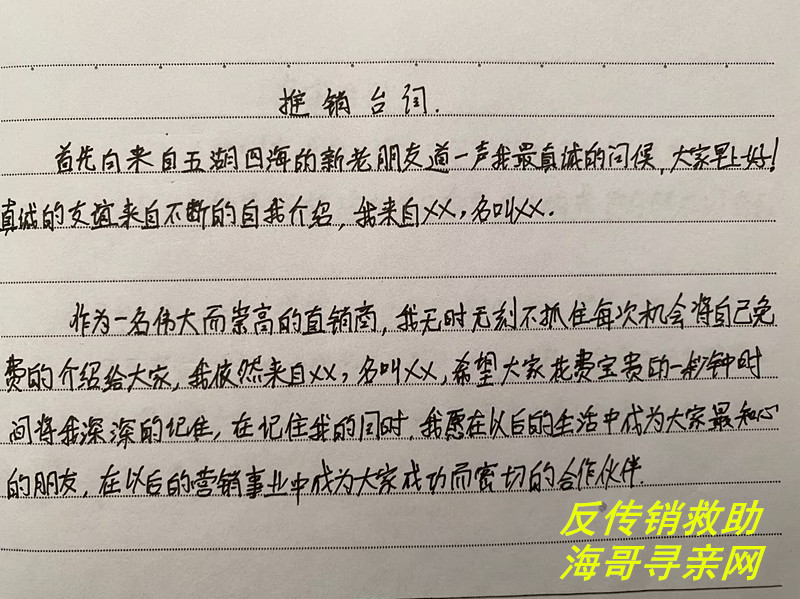 推销台词.
首先向来自五湖四海的新老朋友道一声我最真诚的问候,大家早上好!
真诚的友谊来自不断的自我介绍,我来自XX,名叫XX.
作为一名伟大而崇高的直销商,我无时无刻不抓住每次机会将自己免
费的介绍给大家,我依然来自XX,名叫XX,希望大家花费宝贵的一秒钟时
间将我深深的记住,在记住我的同时,我愿在以后的生活中成为大家最知心
的朋友,在以后的营销事业中成为大家成功而密切的合作伙伴.
反传销救助
海哥寻亲网